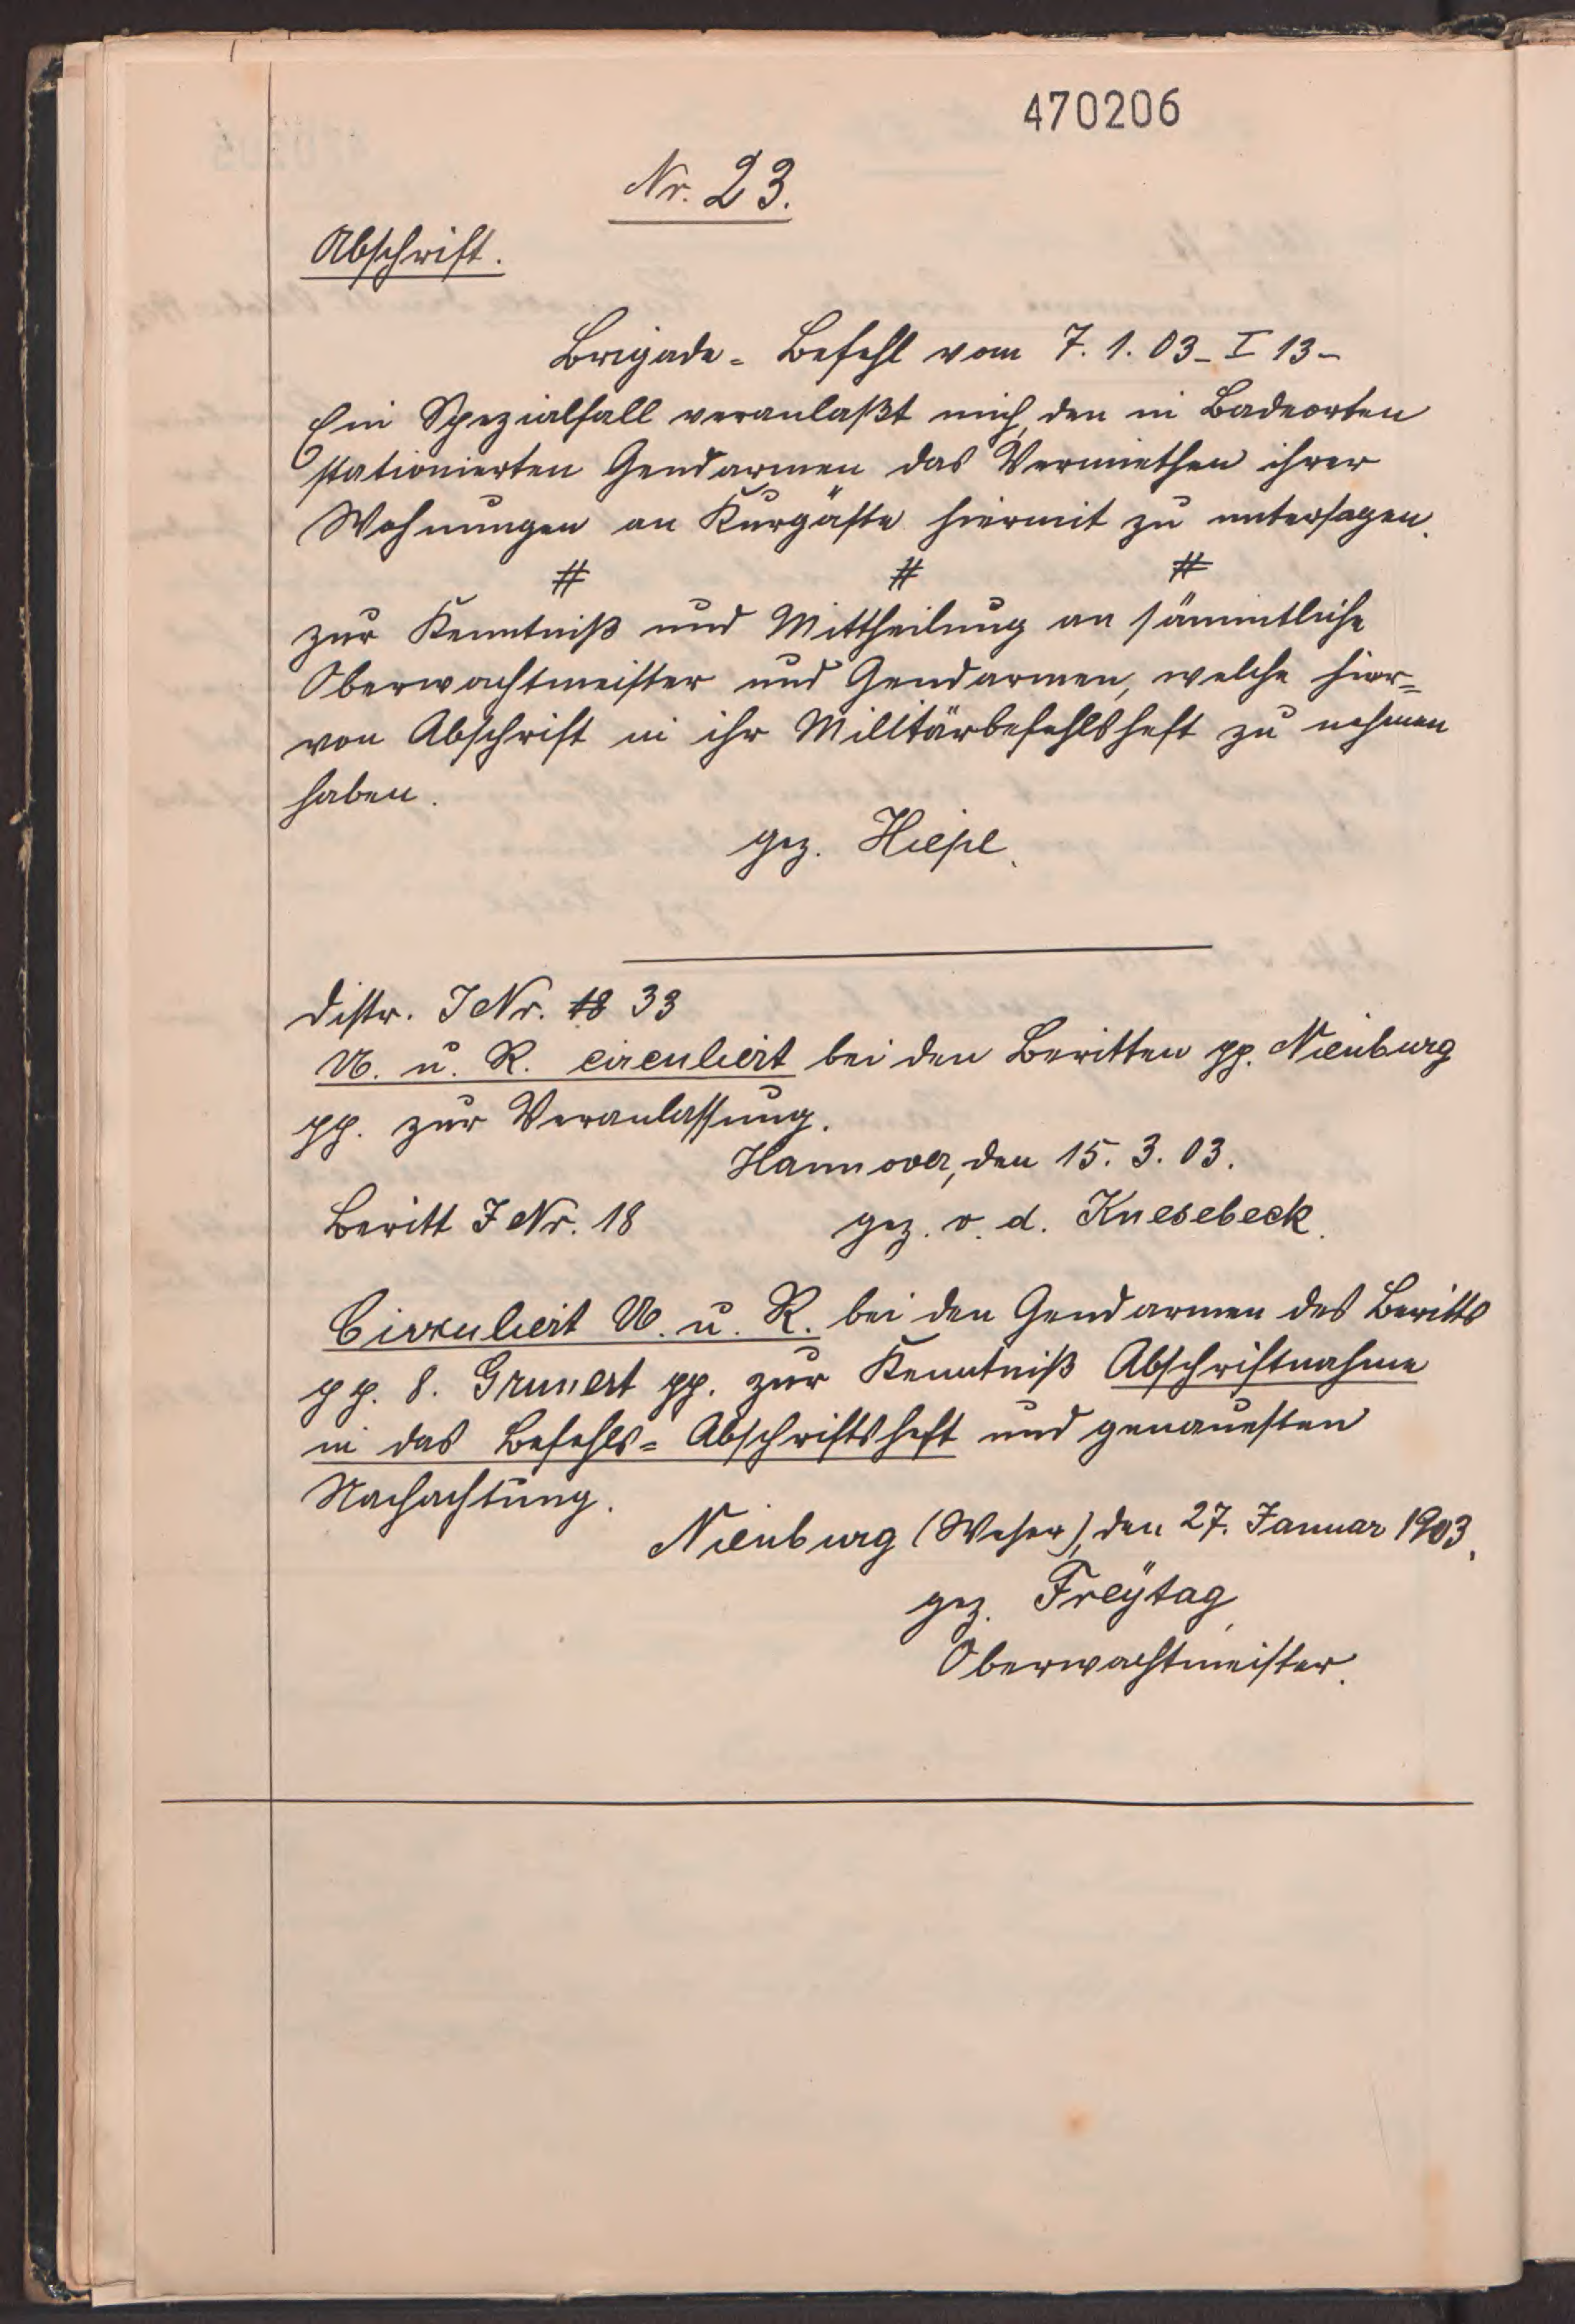 470206
Nr. 23.
Abschrift.
Brigade-Befehl vom 7. 1. 03 - I 13 -
Ein Spezialfall veranlaßt mich, den in Badeorten
stationierten Gendarmen das Vermiethen ihrer
Wohnungen an Kurgäste hiermit zu untersagen.
# # #
zur Kenntniß und Mittheilung an sämmtliche
Oberwachtmeister und Gendarmen, welche hier=
von Abschrift in ihr Militärbefehlsheft zu nehmen
haben.
gez. Hiepe.
Distr. J Nr. 33
U. u. R. circuliert bei den Beritten pp. Nienburg
pp. zur Veranlassung.
Hannover, den 15. 3. 03.
Beritt J Nr. 18 gez. v. d. Knesebeck.
Cirkuliert U. u. R. bei den Gendarmen des Beritts
pp. 8. Grunert pp. zur Kenntniß Abschriftnahme
in das Befehls-Abschriftsheft und genauesten
Nachachtung.
Nienburg (Weser), den 27. Januar 1903.
gez. Freÿtag,
Oberwachtmeister.